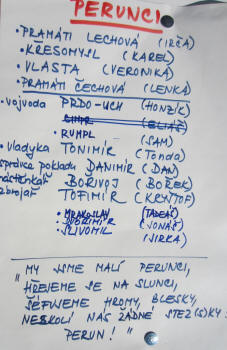 PERUNCI
• PRAMÁTI LECHOVÁ (IRČA)
• KŘESOMYSL (KAREL)
• VLASTA (VERONIKA)
PRAMÁTI ČECHOVÁ (LENKA)
• vojvoda PRDO-UCH (HONZÍK)
(ELIÁŠ)
• RUMPL (SAM)
• vladyka TONIMÍR (Tonda)
správce pokladu DANIMÍR (DAN)
BOŘIVOJ (BOŘEK)
zbrojař TOFIMÍR (KRYŠTOF)
• MRAKOSLAV (TADEÁŠ)
• DOBROMÍR (JONÁŠ)
• SLIVOMIL (JIRKA)
„ MY JSME MALÍ PERUNCI,
HŘEJEME SE NA SLUNCI,
ŠÉFUJEME HROMY, BLESKY,
NESKOLÍ NÁS ŽÁDNÉ STEZ(S)KY.
PERUN! "